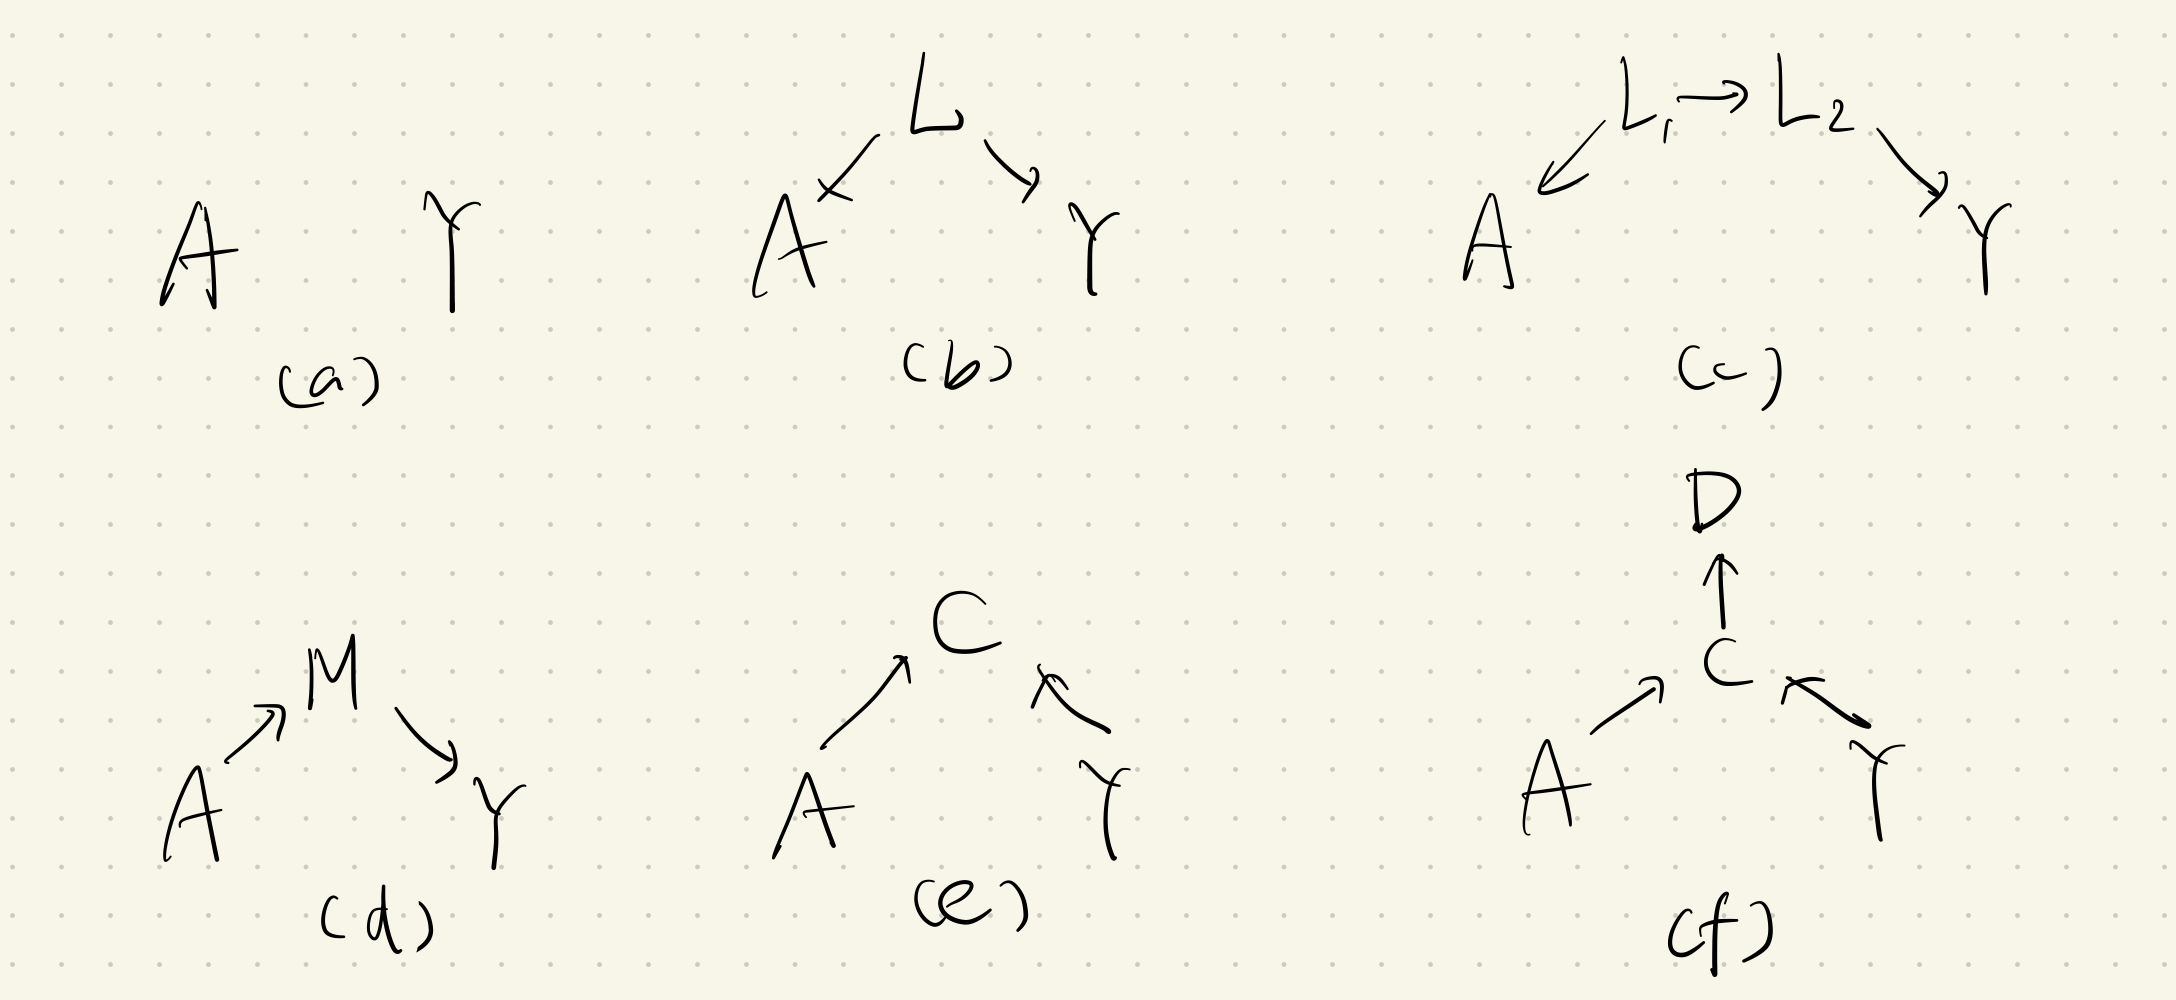 A Y
(a)
L
A Y
(b)
L1 → L2
A Y
(c)
M
A Y
(d)
C
A Y
(e)
D
C
A Y
(f)